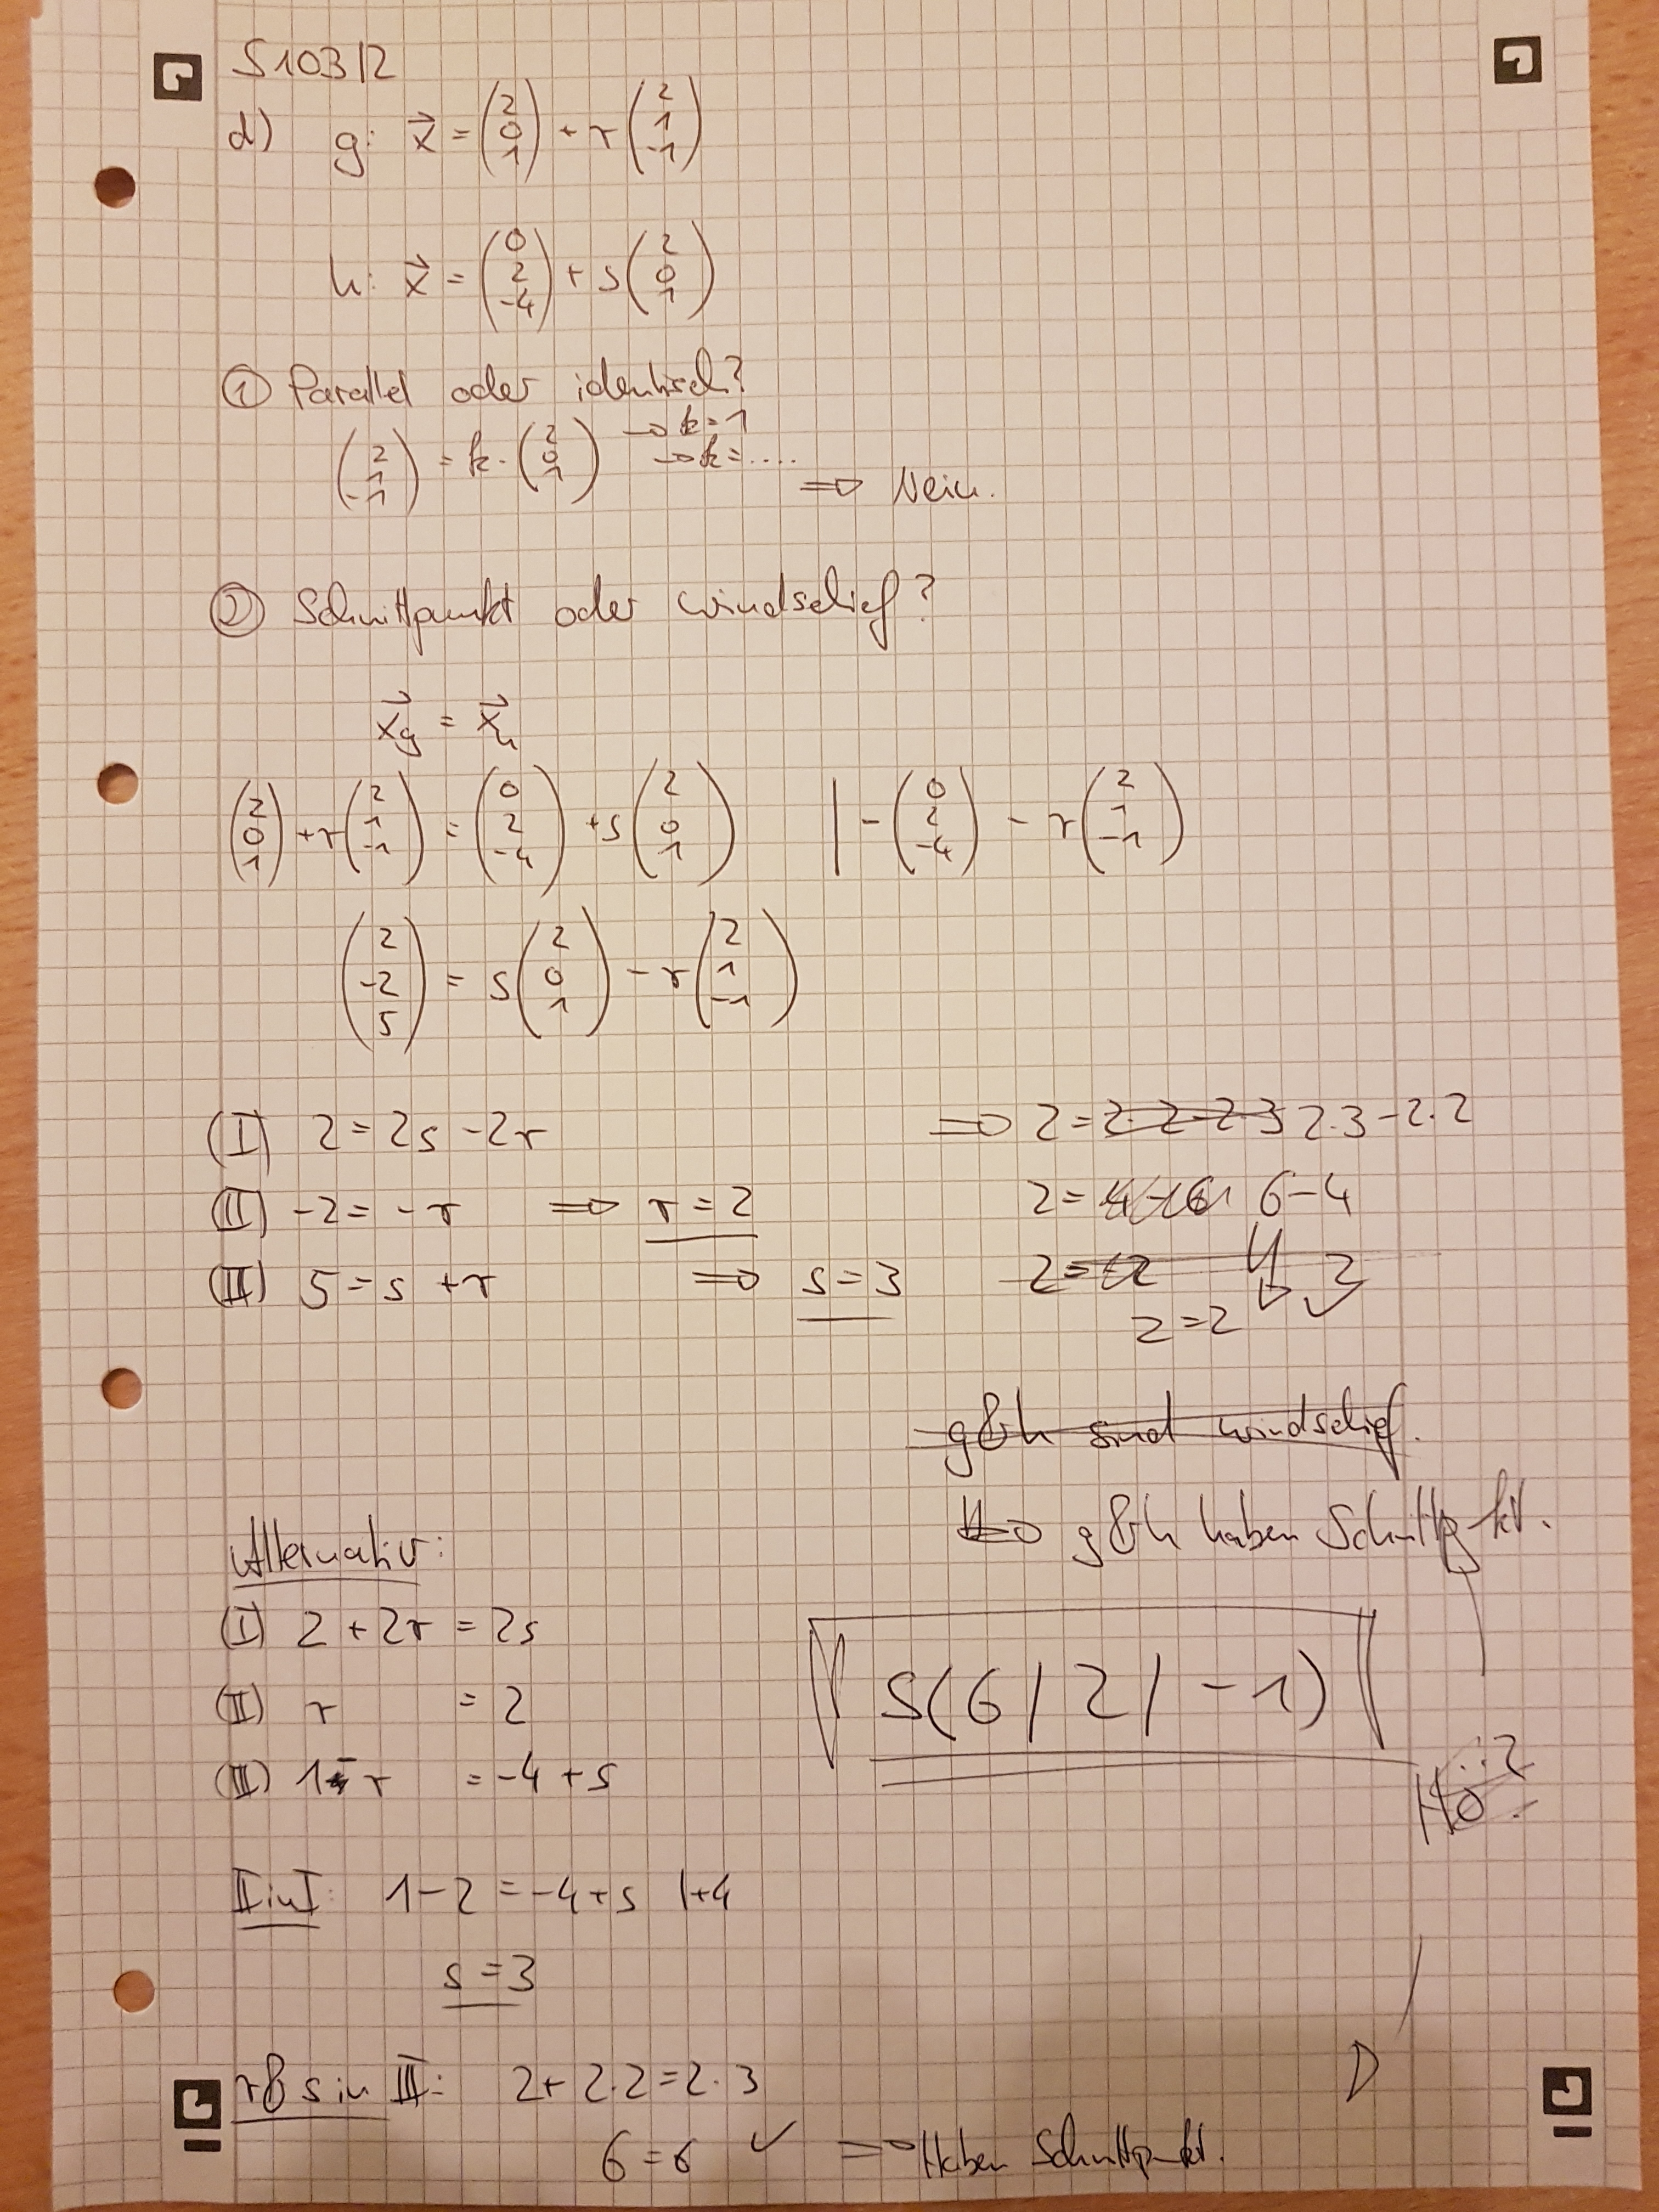 S103/2
d) g: x⃗ = (2 0 1) + r (2 1 -1)
h: x⃗ = (0 2 -4) + s (2 0 1)
① Parallel oder identisch?
(2 1 -1) = k · (2 0 1) → k = 1
→ k = ....
⇒ Nein.
② Schnittpunkt oder windschief?
x⃗g = x⃗h
(2 0 1) + r (2 1 -1) = (0 2 -4) + s (2 0 1) | - (0 2 -4) - r (2 1 -1)
(2 -2 5) = s (2 0 1) - r (2 1 -1)
(I) 2 = 2s - 2r ⇒ 2 = 2·2-2·3 2·3-2·2
(II) -2 = -r ⇒ r = 2 2 = 4-6 6-4
(III) 5 = s + r ⇒ s = 3 2 =
2 = 2 ✓
g&h sind windschief.
⇒ g&h haben Schnittpkt.
Alternativ:
(I) 2 + 2r = 2s
S(6/2/-1)
(II) r = 2
(III) 1 - r = -4 + s
II in I: 1 - 2 = -4 + s |+4
s = 3
r & s in III: 2 + 2·2 = 2·3
6 = 6 ✓ ⇒ Haben Schnittpkt.